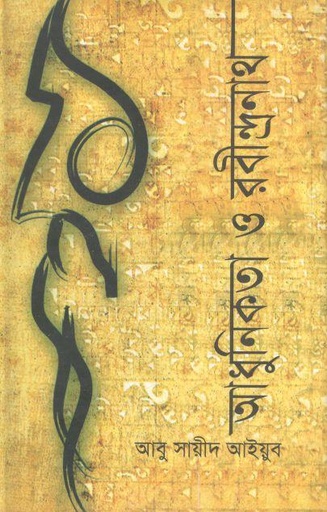 আধুনিকতা ও রবীন্দ্রনাথ
আবু সায়ীদ আইয়ুব